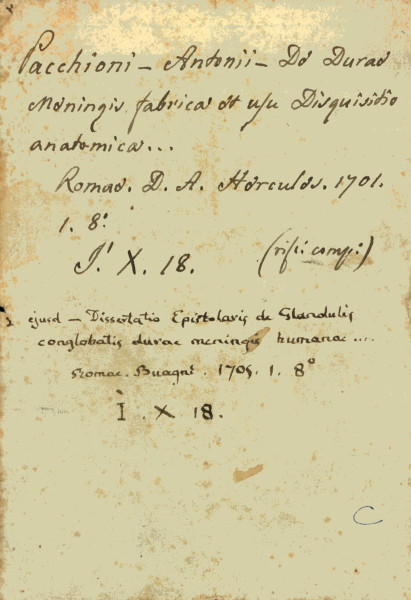 Pacchioni - Antonii - De Durae
Meningis fabrica et usu Disquisitio
anatomica...
Romae. D. A. Hercules. 1701.
1. 8.°
I.' X. 18. (rist: comp:)
ejusd - Dissertatio Epistolaris de Glandulis
conglobatis durae meningis humanae ....
Romae. Buagni. 1705. 1. 8°
I . X 18.
C